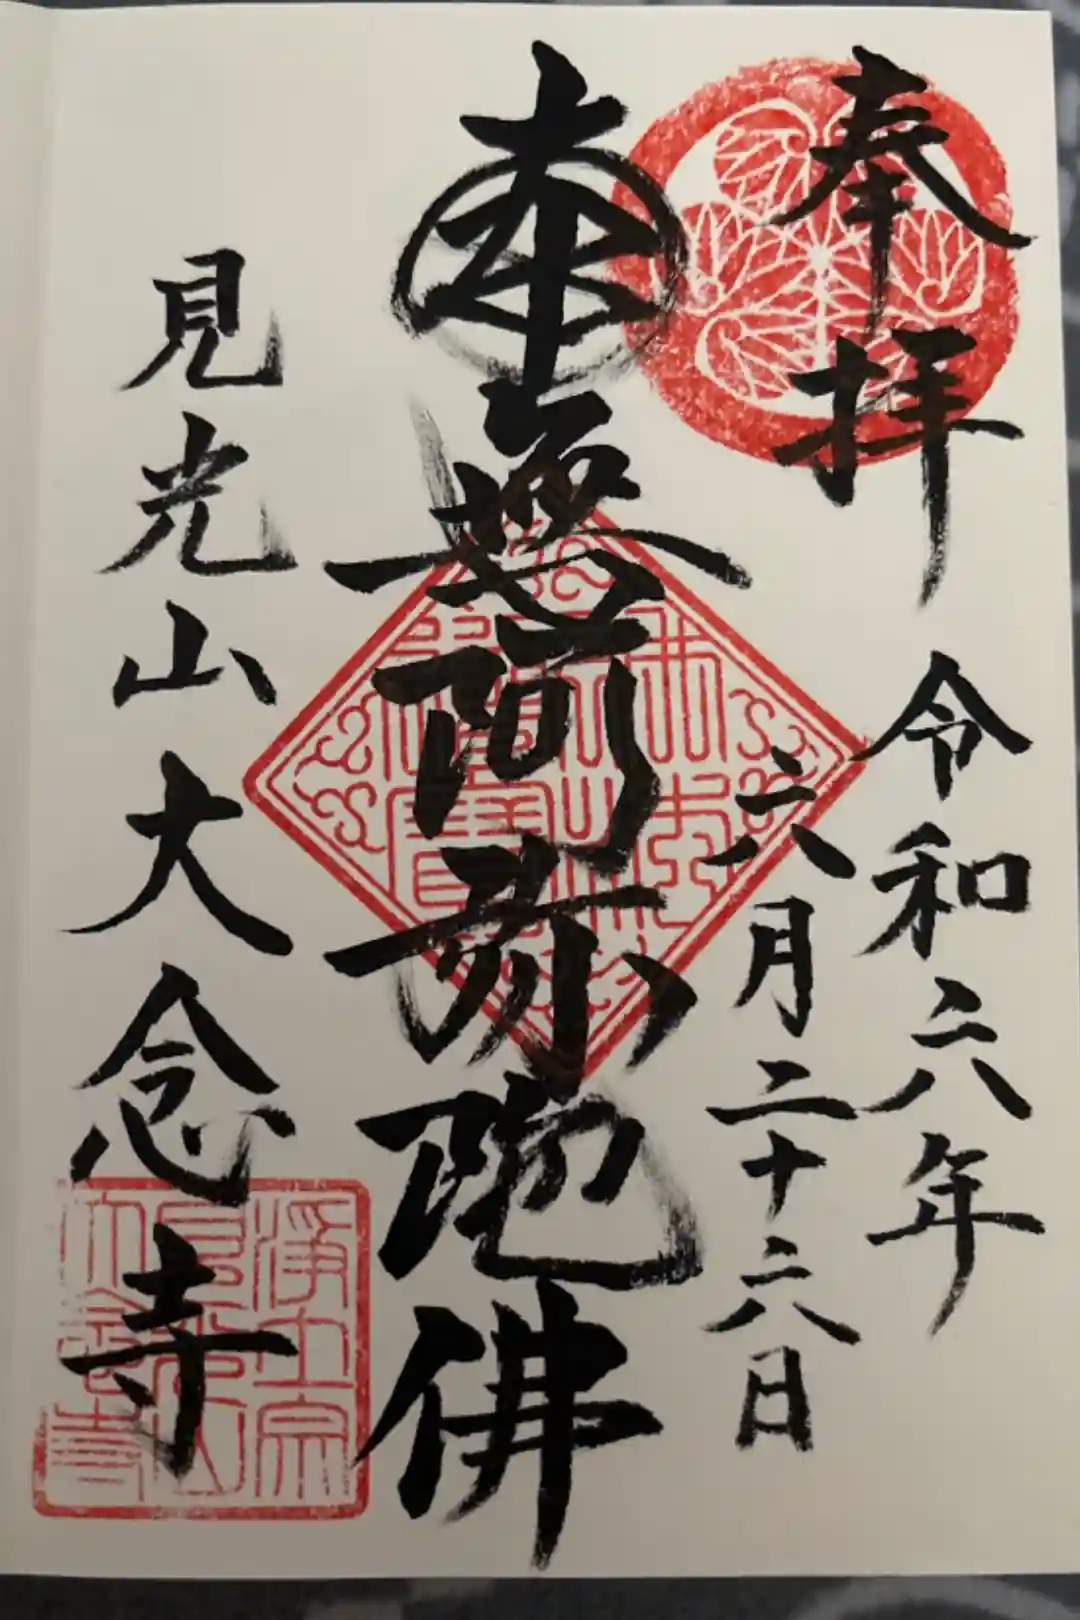 奉拝
令和六年
六月二十六日
南無阿弥陀佛
見光山大念寺
淨土宗
見光山
大念寺